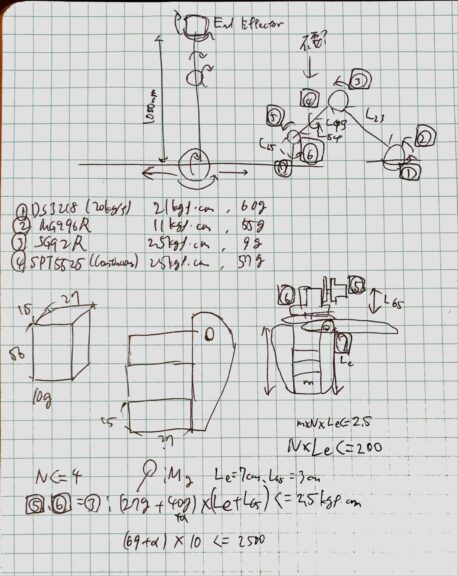 End Effector
1000mm
不要?
③
⑤
④
L23
②
L65
⑥
①
① DS3218 (20kg/s) 21kgf.cm, 60g
② MG996R 11kgf.cm, 55g
③ SG92R 2.5kgf.cm, 9g
④ SPT5525 (continuous) 25kgf.cm, 57g
15 27
50
10g
15
27
⑥ ⑤
L65
Le
m
m×N×Le<=2.5
N×Le<=200
N<=4 Mg Le=7cm, L65=3cm
⑤, ⑥=③: (27g+40g)×(Le+L65)<=2.5kgf.cm
+α
(69+α)×10<=2500